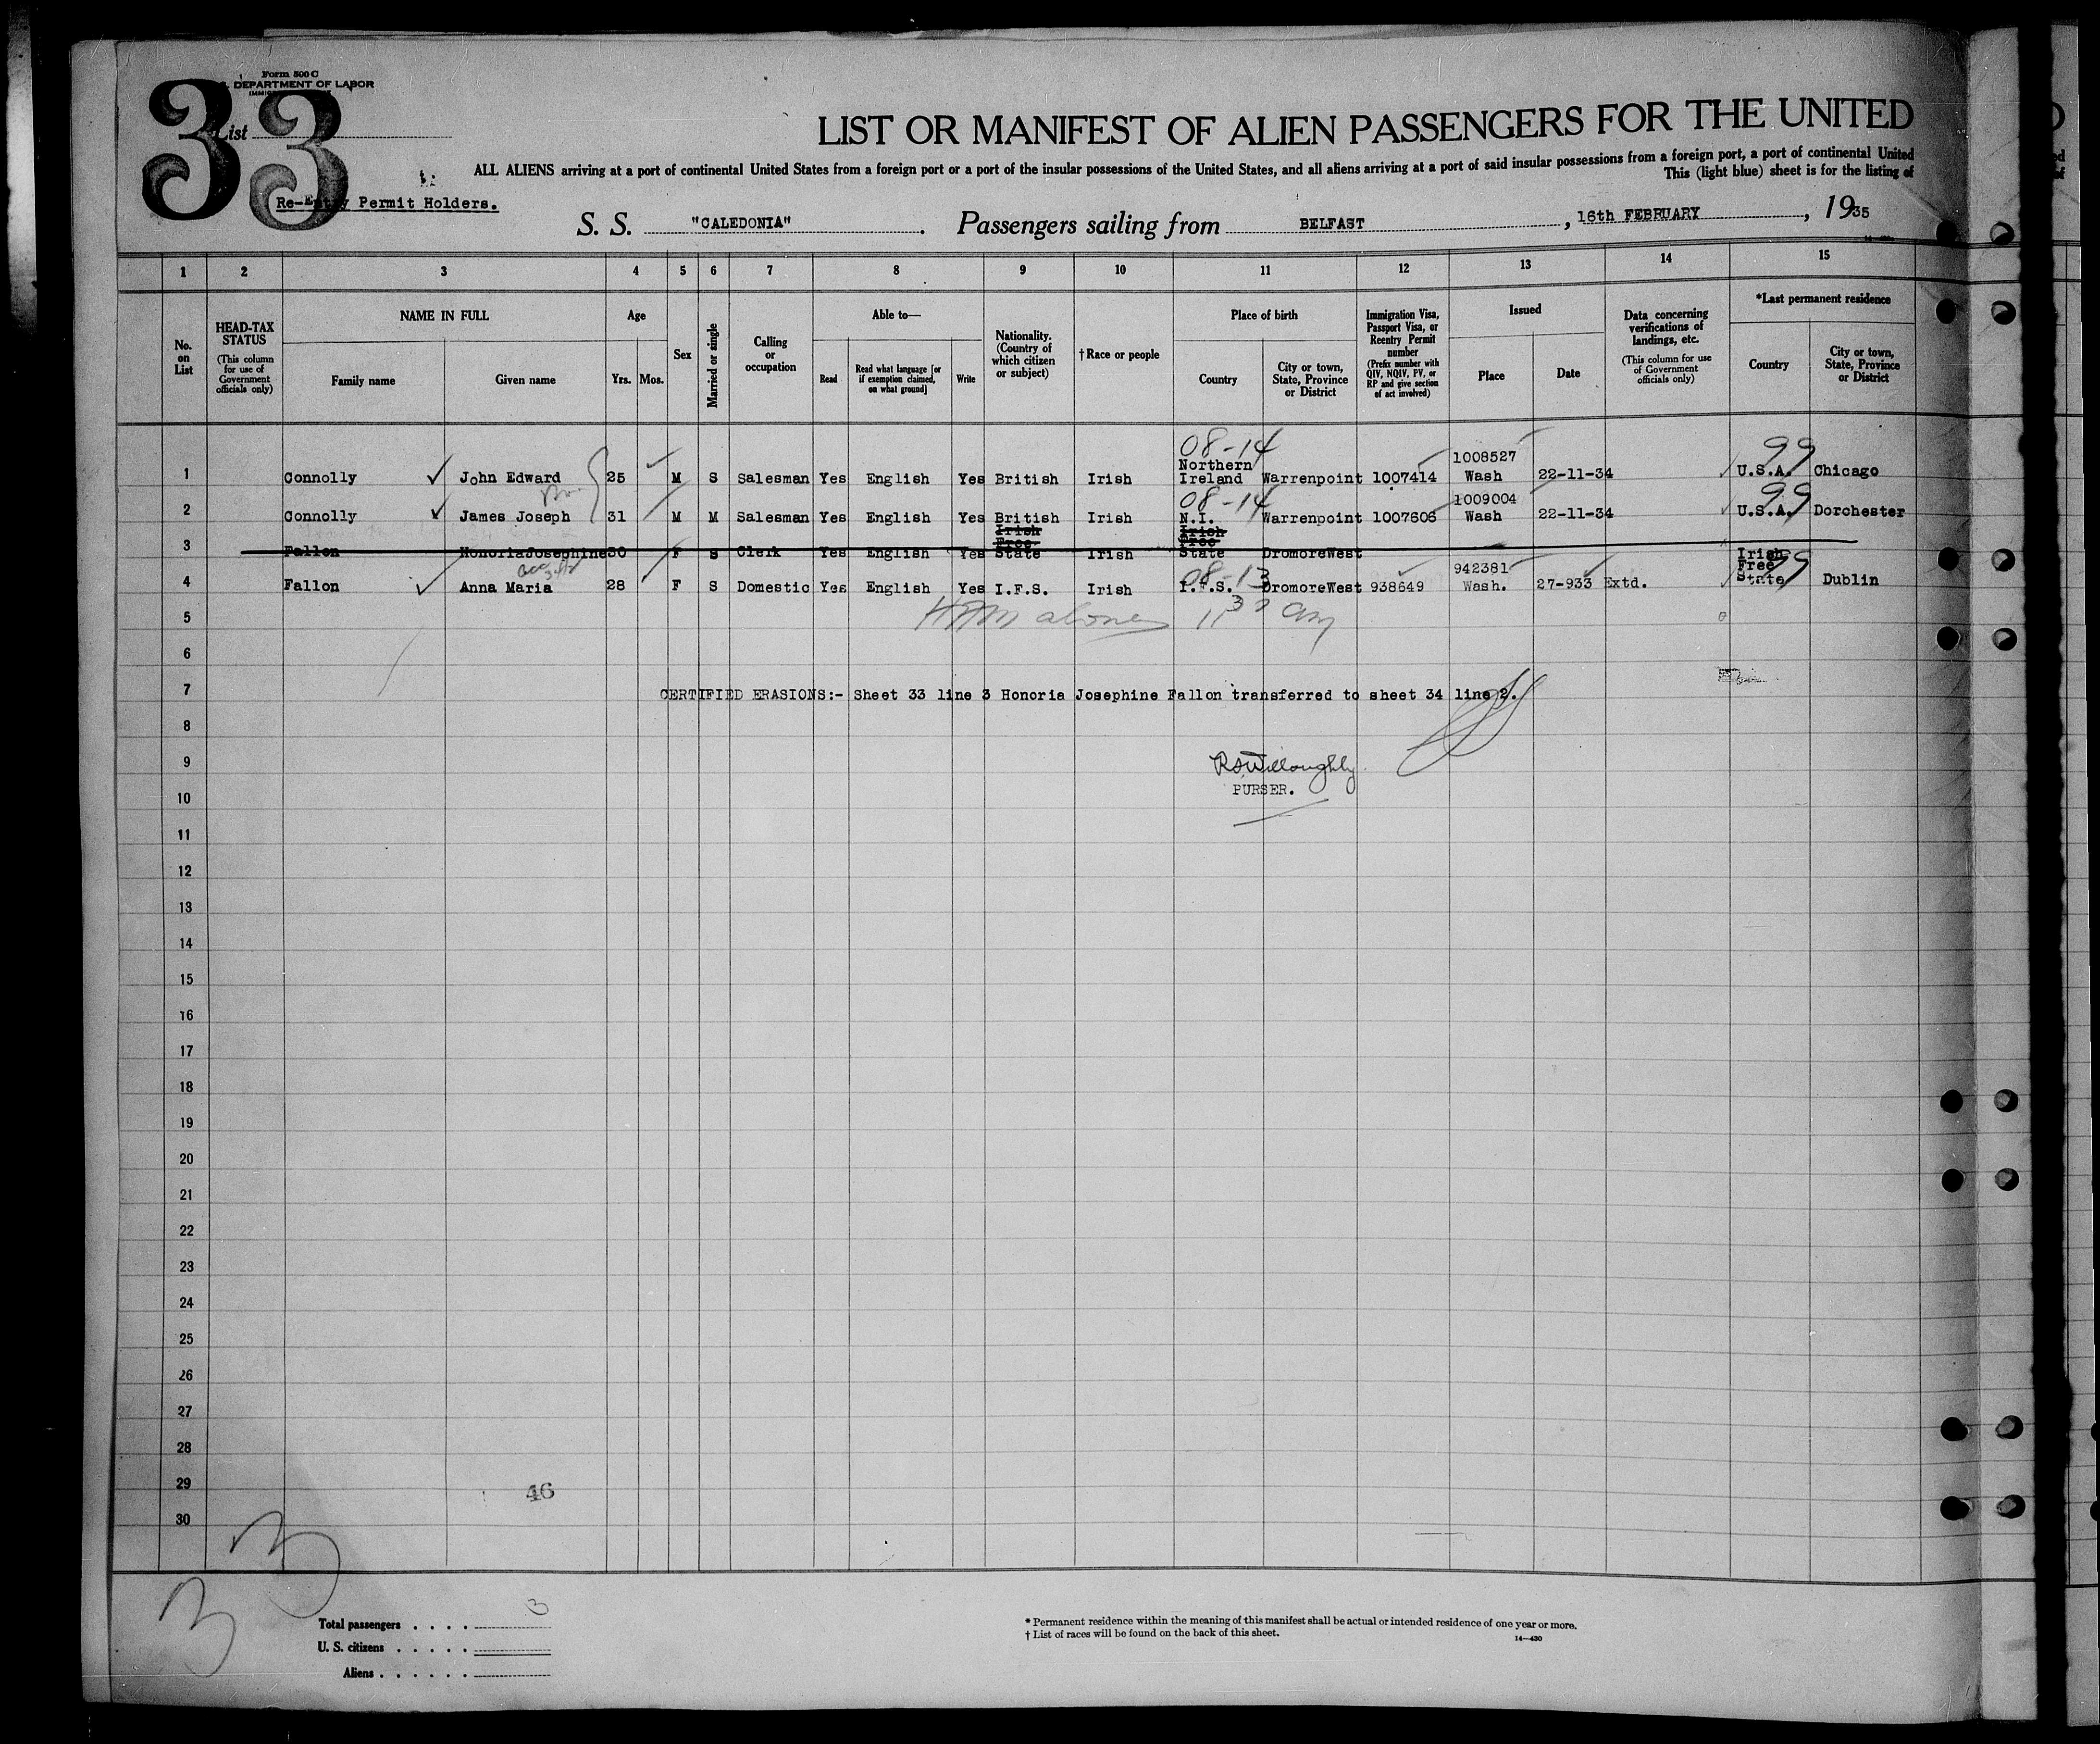 33
Form 500 C
DEPARTMENT OF LABOR
List
LIST OR MANIFEST OF ALIEN PASSENGERS FOR THE UNITED
ALL ALIENS arriving at a port of continental United States from a foreign port or a port of the insular possessions of the United States, and all aliens arriving at a port of said insular possessions from a foreign port, a port of continental United
This (light blue) sheet is for the listing of
Re-Entry Permit Holders.
S. S. "CALEDONIA". Passengers sailing from BELFAST, 16th FEBRUARY, 1935
1 2 3 4 5 6 7 8 9 10 11 12 13 14 15
No. on List
HEAD-TAX STATUS (This column for use of Government officials only)
NAME IN FULL
Family name
Given name
Age
Yrs. Mos.
Sex
Married or single
Calling or occupation
Able to—
Read
Read what language [or if exemption claimed, on what ground]
Write
Nationality. (Country of which citizen or subject)
†Race or people
Place of birth
Country
City or town, State, Province or District
Immigration Visa, Passport Visa, or Reentry Permit number (Prefix number with QIV, NQIV, PV, or RP and give section of act involved)
Issued
Place
Date
Data concerning verifications of landings, etc. (This column for use of Government officials only)
*Last permanent residence
Country
City or town, State, Province or District
08-14 99
1 Connolly John Edward 25 M S Salesman Yes English Yes British Irish Northern Ireland Warrenpoint 1007414 1008527 Wash 22-11-34 U.S.A. Chicago
08-14 99
2 Connolly James Joseph 31 M M Salesman Yes English Yes British Irish N.I. Warrenpoint 1007606 1009004 Wash 22-11-34 U.S.A. Dorchester
3 Fallon Honoria Josephine 30 F S Clerk Yes English Yes Irish Free State Irish Irish Free State DromoreWest
08-13 99
4 Fallon Anna Maria 28 F S Domestic Yes English Yes I.F.S. Irish I.F.S. DromoreWest 938649 942381 Wash. 27-933 Extd. Irish Free State Dublin
5
6
7 CERTIFIED ERASIONS:- Sheet 33 line 3 Honoria Josephine Fallon transferred to sheet 34 line 2.
8
9 RSWilloughby
10 PURSER.
11
12
13
14
15
16
17
18
19
20
21
22
23
24
25
26
27
28
29 46
30
Total passengers . . . . 3
U. S. citizens . . . . .
Aliens . . . . . .
* Permanent residence within the meaning of this manifest shall be actual or intended residence of one year or more.
† List of races will be found on the back of this sheet.
14—430